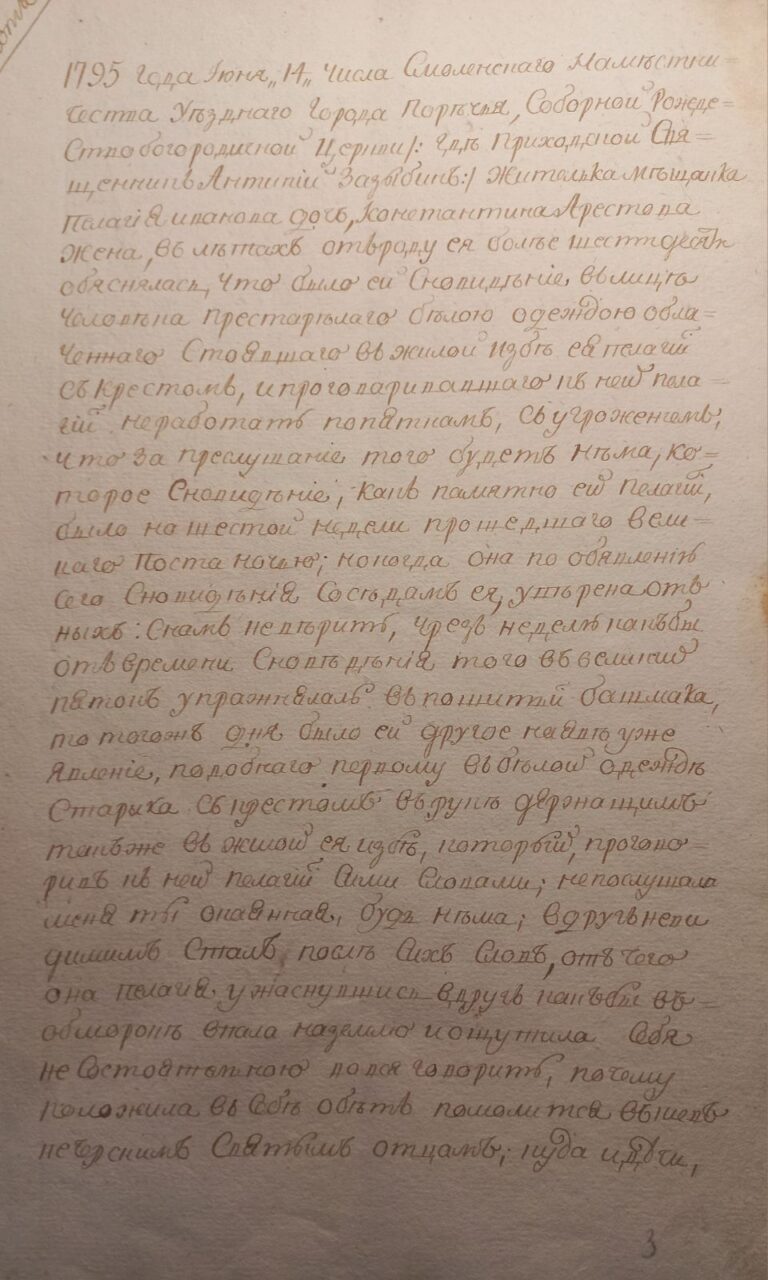 1795 года Июня „14„ числа Смоленскаго Намѣстни=
чества Уѣзднаго Города Порѣчья, Соборной Рожде=
ство богородичной Церкви /: гдѣ Приходской Свя=
щенникъ Антипій Зазыбинъ :/ жителька мѣщанка
Пелагія иванова дочь, Константина Арестова
жена, въ лѣтахъ отъ роду ея болѣе шестидесяти
обяснялась, что было ей Сновидѣніе въ лицѣ
человѣка престарѣлаго бѣлою одеждою обла=
ченнаго Стоявшаго въ жилой избѣ ея пелагіи
съ крестомъ, и проговаривавшаго къ ней пела=
гіи неработать попяткамъ, съ угроженіемъ,
что за преслушаніе того будетъ нѣма, ко=
торое Сновидѣніе, какъ памятно ей Пелагіи,
было на шестой недели прошедшаго вели=
каго Поста ночью; но когда она по обявленіи
сего Сновидѣнія Сосѣдамъ ея, увѣрена отъ
ныхъ: Снамъ невѣрить, чрезъ неделю какъ бы
отъ времени Сновѣдѣнія того въ великий
пятокъ упражнялась въ пошитьи башмака,
то тогожъ дня было ей другое наявѣ уже
явленіе, подобнаго первому въ бѣлой одеждѣ
Старика съ крестомъ въ рукѣ держащимъ
такъже въ жилой ея избѣ, который, прогово=
рилъ къ ней пелагіи Сими Словами; непослушала
меня ты окаянная, будь нѣма; вдругъ неви
димимъ Сталъ, послѣ Сихъ Словъ, отъ чего
она пелагія ужаснувшись вдругъ какъ бы въ=
обморокъ впала на землю и ощутила Себя
не Состоятельною вовся говорить, почему
положила въ Себѣ обѣтъ помолится въ Кіевъ
печерскимъ Святымъ отцамъ; куда идучи,
3